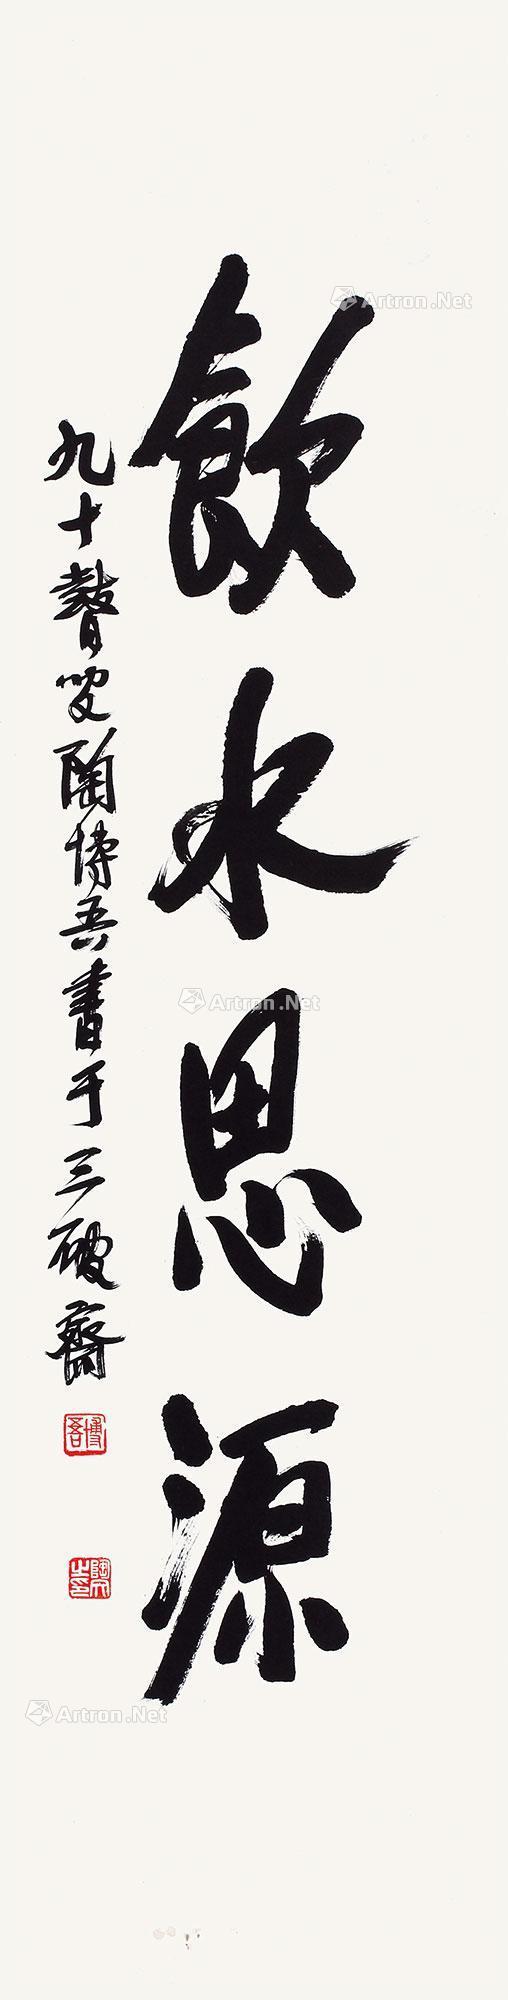 飲水思源
九十聱叟陶博吾書于三破齋
博吾
Artron.Net
Artron.Net
Artron.Net